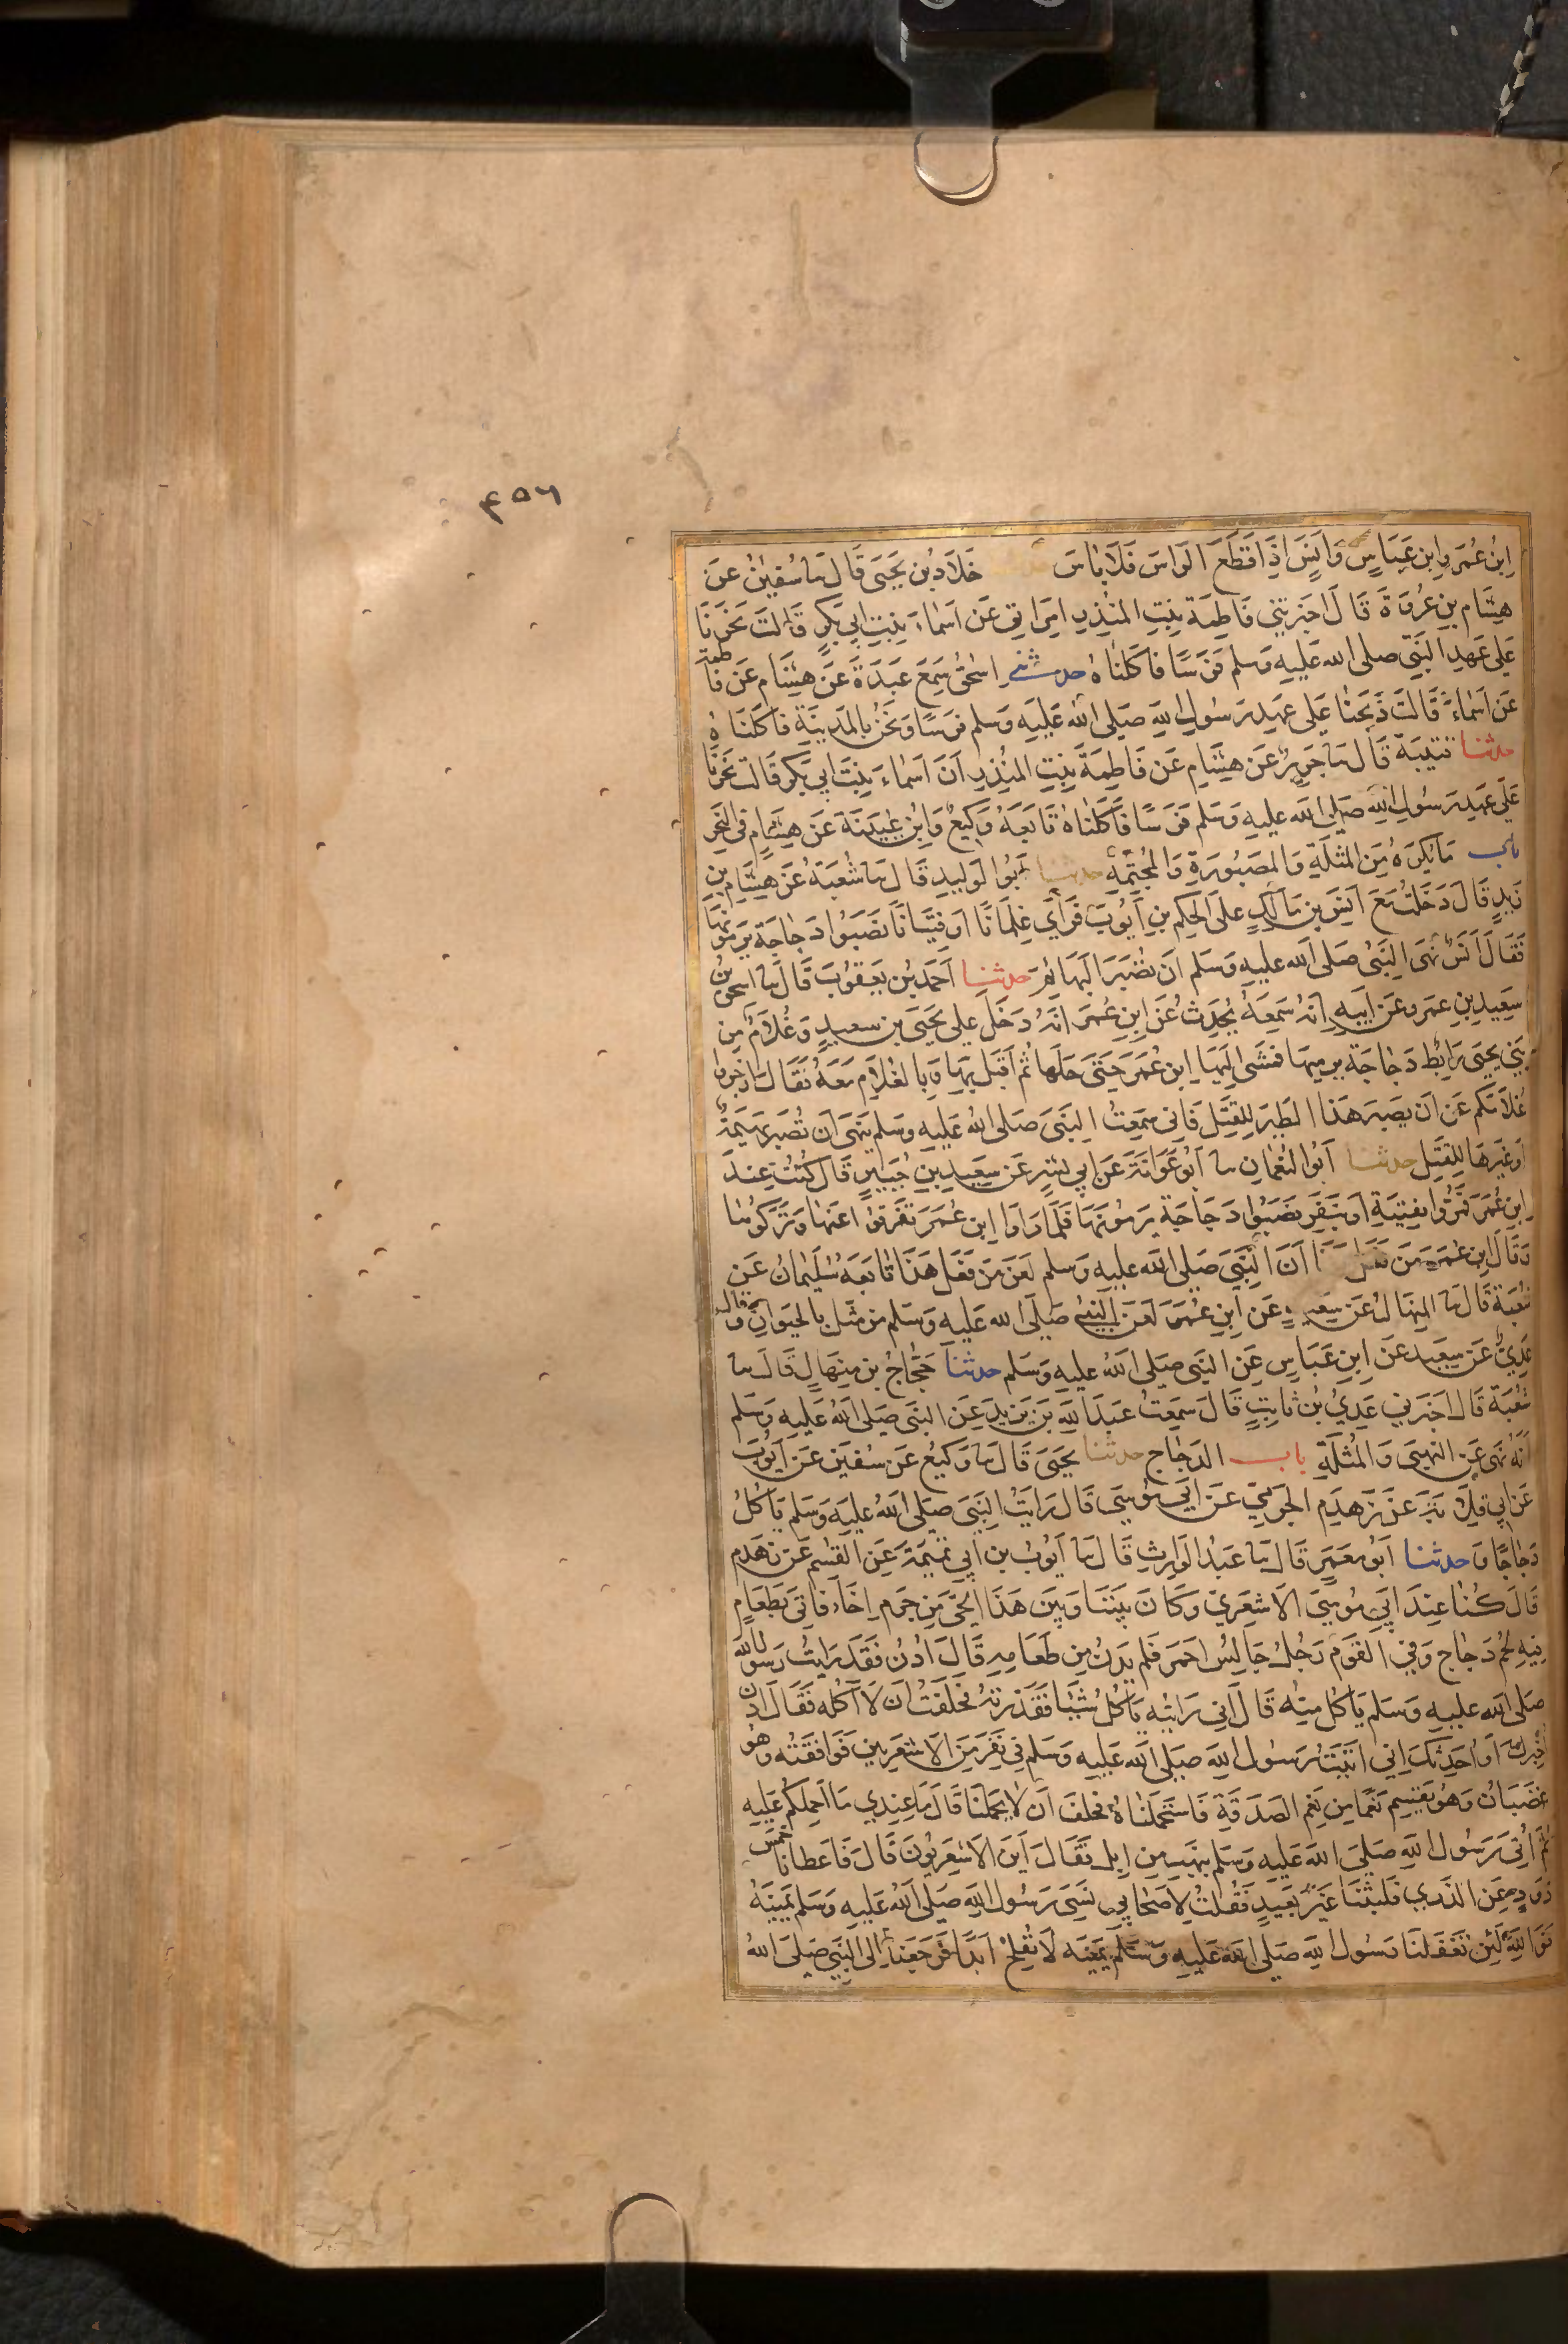 ٤٥٦
ابْنُ عُمَرَ وابن عَبَاسٍ وَأنَسٌ اِذَا قَطَعَ الرَاسَ فَلَا بَاسَ خَلَادُ بْن يَحيَى قَالَ ثنا سُفيٰنُ عَن
هِشَام بنِ عُروَةَ قَالَ اَخبَرتنِي فَاطِمَة بِنتِ المنُذِرِ امرَاتي عَن اَسمَاءَ بِنتِ ابي بَكرٍ قَالَت نَحَرنَا
عَلى عَهدِ النَبيِّ صلى الله عَليهِ وَسلم فَرَسًا فاَكَلنَاهُ حدثنى اسحٰقُ سَمِعَ عَبدَةَ عَن هِشَام عَن فَاطمة
عَن اَسمَاءَ قَالَت ذَبَحنَا عَلى عهدِ رَسُولِ اللهِ صَلى الله عَليهِ وَسلم فرَسًا وَنحَنُ بالمَدِينَةِ فاكلنَاهُ
حدثنا قتيبَة قَالَ ثنا جَرِيرٌ عَن هِشَامِ عَن فَاطِمَةَ بِنتِ المنُذِرِ اَنَ اَسمَاءَ بِنتَ ابي بَكرٍ قَالَت نحَرنَا
عَلى عَهدِ رَسُولِ اللهِ صَلى الله عَليهِ وَسَلم فرَسًا فاَكَلنَاهُ تَابعَهُ وَكِيعٌ وَابن عُيَينَةَ عَن هِشَامٍ في النَحرِ
باب مَا يُكرَهُ مِنَ المثلَةِ وَالمصَبُورَةِ وَالمجُثمَةِ حدثنا اَبُوا لوَليدِ قَالَ ثنا شُعبَةُ عَن هِشَام بنِ
زَيدٍ قَالَ دَخَلتُ مَعَ اَنَسَ بن مَالكٍ عَلى الحكَمِ بنِ اَيُوبَ فَرَاىَ غِلمَانًا اَو فِتيَانًا نَصَبوُا دَجاجَة يَرمُونَهَا
فقَالَ اَنَسٌ نَهَى النَبيُّ صَلى الله عَليهِ وَسَلم اَن تُصبَرَ البَهَائِمُ حدثنا اَحمَدُ بن يَعقوُبَ قَالَ ثنا اسحٰق بنُ
سَعِيدِ بنِ عمَرو عَن اَبِيهِ انَهُ سَمِعَهُ يُحَدِثُ عَن ابنِ عُمَرَ انَهُ دَخَلَ على يَحيَى بن سعيدٍ وَغُلامٌ مِن
بَني يحيَى رَابِط دَجَاجَة يرميهَا فمشَى اِليَهَا ابن عُمَرَ حَتىَ حَلهَا ثُم اَقبَلَ بِهَا وَبا لغُلَامِ مَعَهُ فَقَالَ ازجُروا
غُلاَمَكم عَن اَن يصَبِرَ هَذا الطَيرَ للقَتلِ فَاني سَمِعتُ النَبيَ صَلى الله عَليهِ وسَلم نَهىَ اَن تُصبَرَ بَهيمَةٌ
اَو غَيرهَا لِلقَتلِ حدثنا اَبُوا لنُعمَانِ ثنا اَبُو عَوَانَةَ عَن ابي بشرٍ عَن سَعِيدِ بنِ جُبَيرٍ قَال كُنتُ عِندَ
ابنِ عُمَرَ فمرُّوا بِفتيَةٍ اَو بنَفَرٍ نَصَبُوا دَجَاجَة يَرمُونَهَا فلَمَا رَاَوا ابن عُمَرَ تَفَرَقوُا عَنهَا وَتَرَكوُهَا
وَقَالَ ابن عُمَرَ مَن فَعَلَ هَذا اَنَ النَبيَ صَلى الله عليهِ وَسلم لَعَنَ مَن فَعَلَ هَذا تابَعَهُ سُليمَانُ عَن
شُعبَةَ قَالَ ثنا المِنهَالُ عَن سَعِيدٍ عَن ابن عُمَرَ لَعَنَ النَبيُ صَلى الله عَليهِ وَسَلم مَن مَثَلَ بالحيَوَانِ وقَال
عَدِيٌّ عَن سِعيدٍ عَن ابن عَبَاسٍ عَن النَبي صَلى الله عليهِ وَسَلم حدثنا حَجَّاجُ بن مِنهَالٍ قَالَ ثنا
شُعبَة قَالَ اَخبَرَني عَدِيُ بُن ثابِتٍ قَالَ سَمِعتُ عَبدَ اللهِ بنَ يَزيدَ عَن النَبي صَلى الله عَليهِ وَسَلم
اَنَهُ نَهَى عَن النهبىَ وَالمثُلَةِ باب الدَجَاجِ حدثنا يَحيَى قَالَ ثنا وَكيعٌ عَن سُفيَن عَن اَيُوبَ
عَن ابي قِلَابَةَ عَن زَهدَمِ الجَرمِيّ عَن اَبيِ مُوسَى قَالَ رَايَتُ النَبيَ صَلى الله عَليهِ وَسَلم يَاكُلُ
دَجَاجًا وَ حدثنا اَبُو مَعمَرٍ قَالَ ثنا عَبدُ الوَارِثِ قَالَ ثنا اَيُوبُ بن اَبي تَميمَةَ عَن القٰسِم عَن زَهدَمٍ
قَالَ كُنا عِندَ اَبيِ مُوسَى الاَشعَرِي وَكَانَ بَينَنَا وَبينَ هَذَا الحَيّ مِن جَرمٍ اِخَاءٌ فاتى بِطَعَامٍ
فيهِ لحُم دَجَاجٍ وَفي القوَم رَجُلٌ جَالسٌ احمَر فَلم يَدنُ مِن طَعَامِهِ قَالَ ادنُ فقَد رَايتُ رَسُولَ الله
صَلى الله عليهِ وَسَلم يَاكلُ منِه قَالَ اني رَايتُه يَاكُلُ شَيًا فَقَذِرتُهُ فحَلَفَتُ اَن لَا آكُله فَقَالَ ادنُ
اُخبِركَ اَو اُحَدِثكَ اِني اَتَيتُ رَسُول اللهِ صَلى الله عَليهِ وَسَلم في نَفَرٍ مِنَ الاَشعَرِيين فَوَافقَتُه وَهُو
غضَبَانُ وَهُوَ يَقسِمُ نَعَمًا مِن نَعَم الصَدَقَةِ فَاستَحمَلنَاهُ فحَلفَ اَن لاَ يَحمِلنَا قَالَ مَا عِندِي مَا اَحمِلكُم عَليهِ
ثُمَّ اُتيَ رَسُول اللهِ صَلى الله عَليهِ وَسَلم بنَهبٍ مِن اِبِلٍ فَقَالَ اَينَ الاَشعَرِيُونَ قَالَ فَاعطانا خَمسَ
ذَودٍ غُر الذُرى فَلبِثنَا غَيرَ بَعيدٍ فَقُلتُ لِاَصحَابي نَسِيَ رَسُول اللهِ صَلى الله عَليهِ وَسَلم يَمينَهُ
فَوَاللهِ لَئِن تَغَفَلنَا رَسُول اللهِ صَلى الله عَليهِ وَسَلم يَمينَه لَا نُفلِحُ اَبَدًا فَرَجَعنَا اِلى النَبي صَلى الله